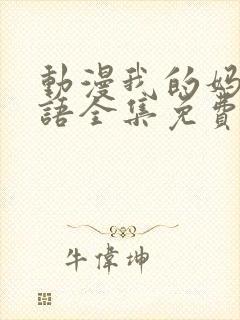 動漫我的妈
語全集免費
牛偉坤